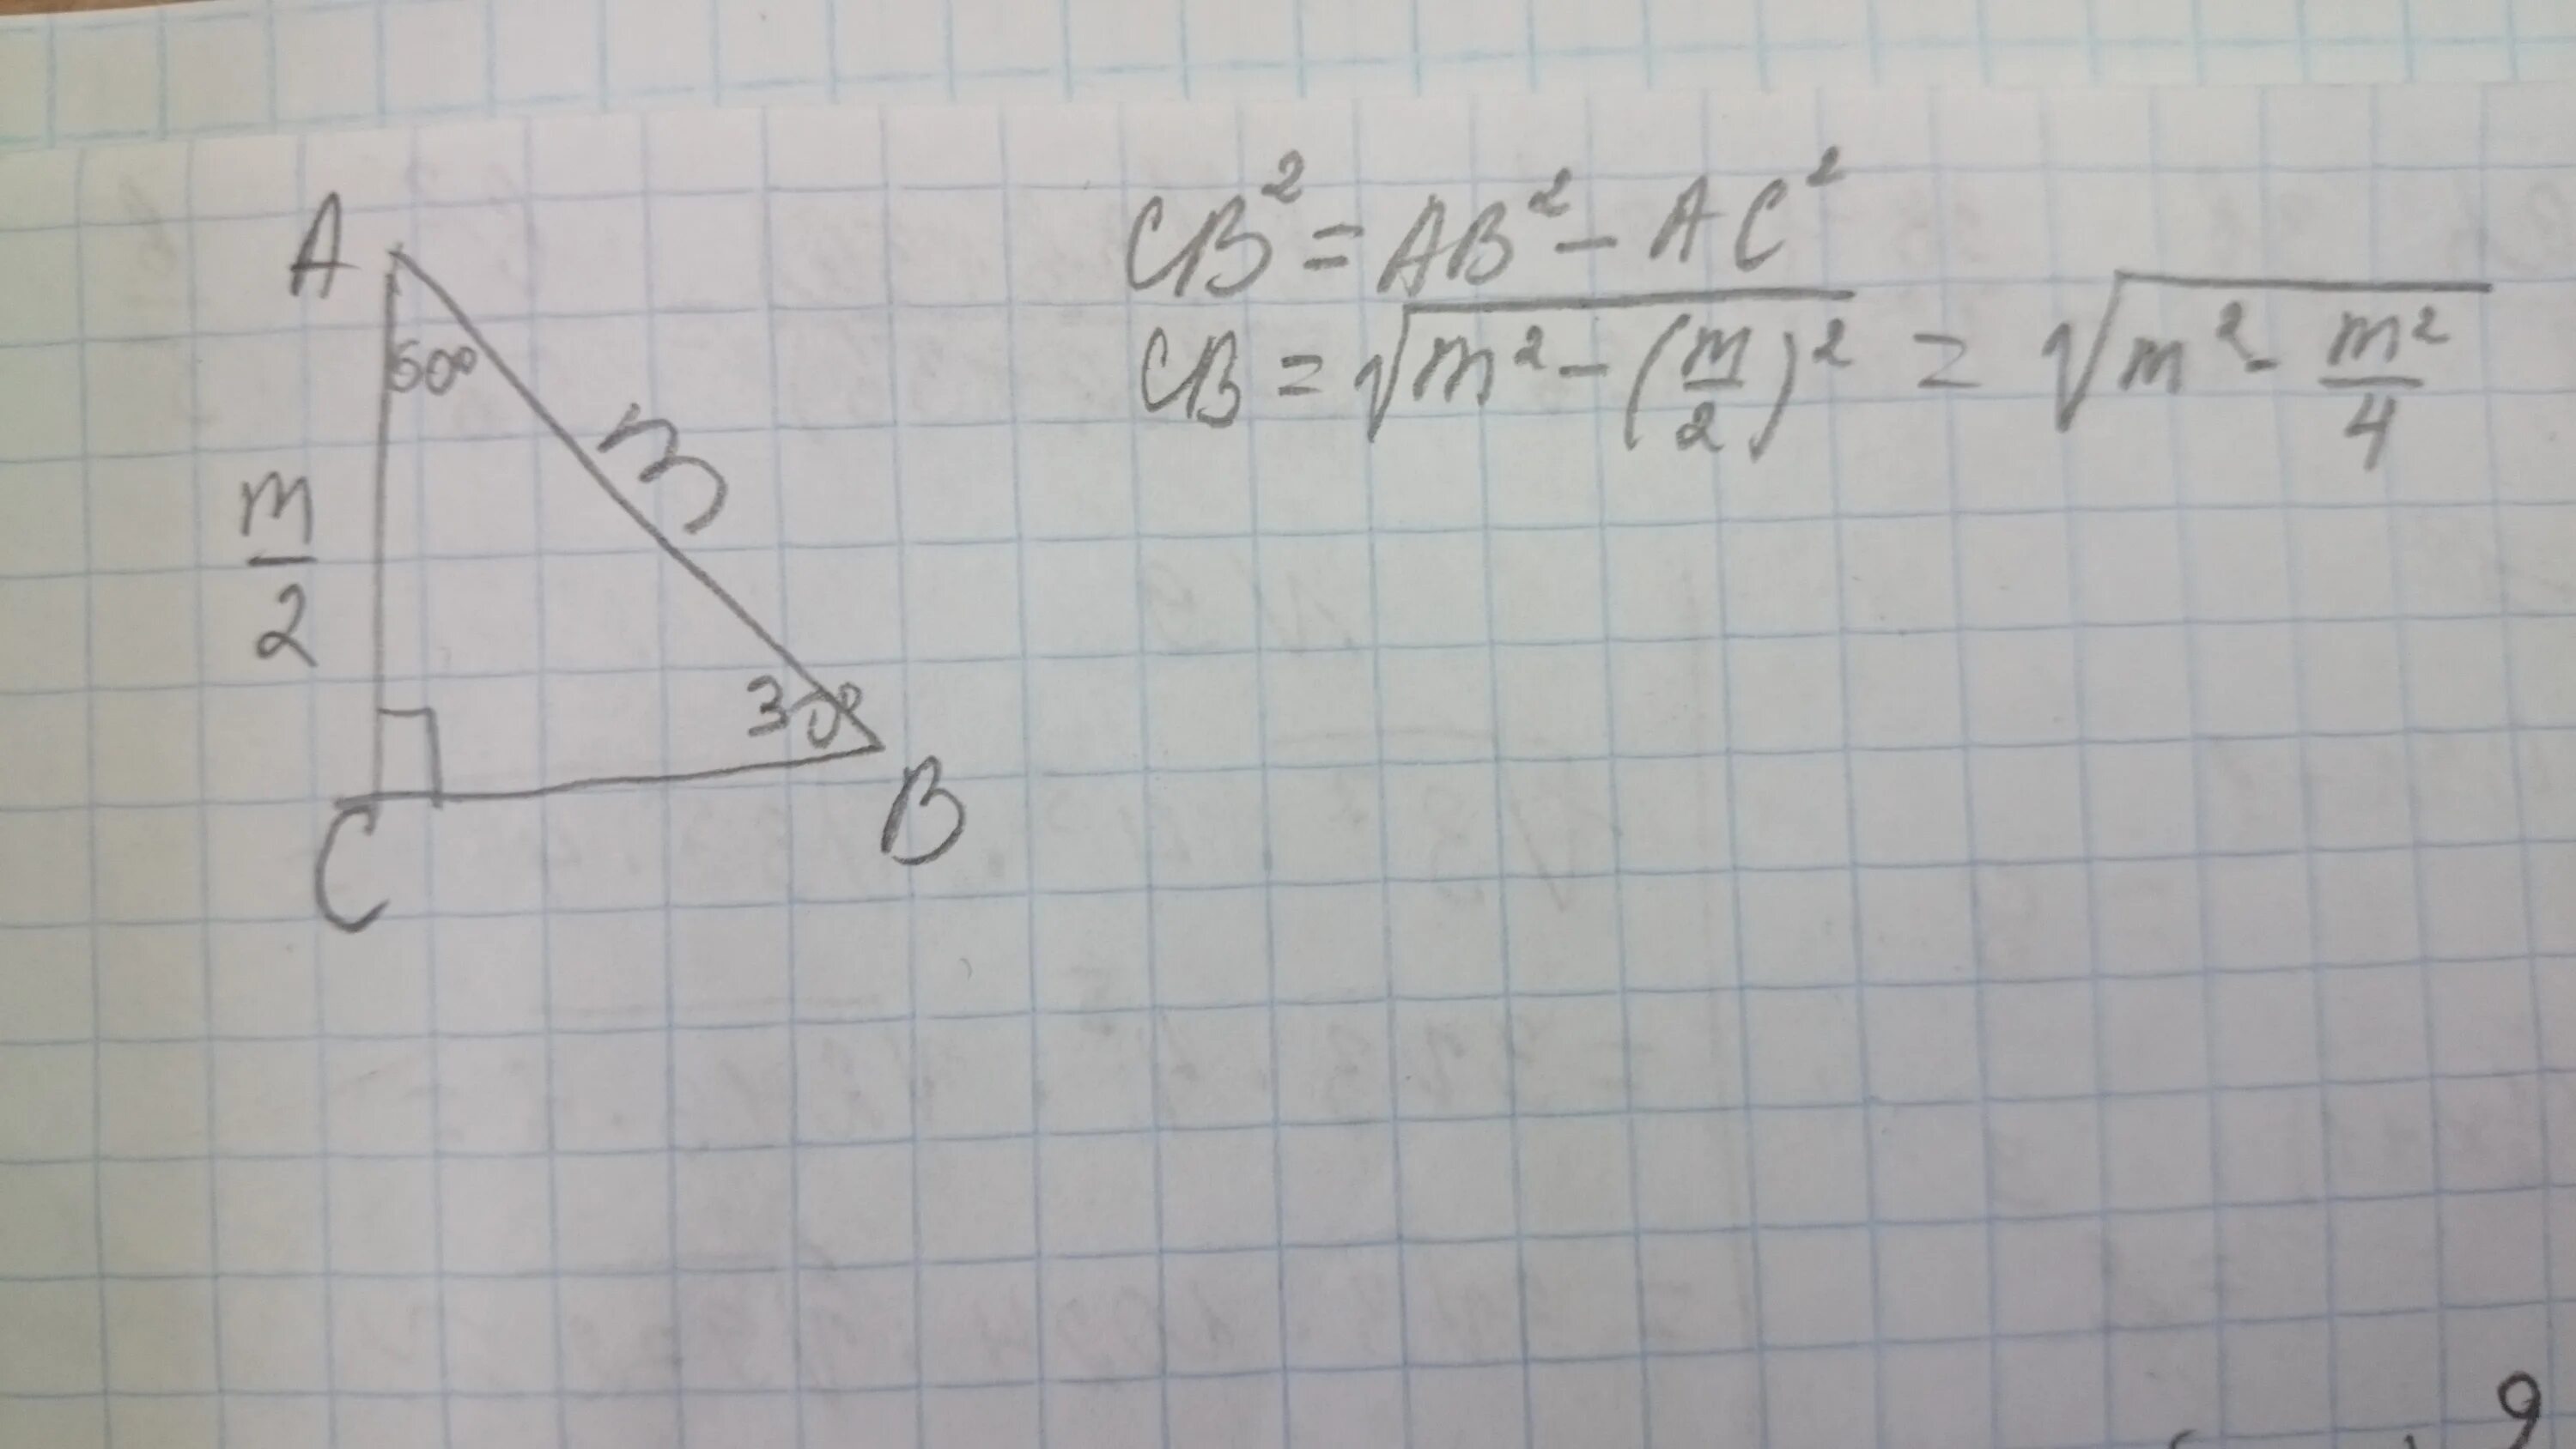 A
60°
m
m/2
30°
C
B
CB² = AB² - AC²
CB = √(m² - (m/2)²) = √(m² - m²/4)
9